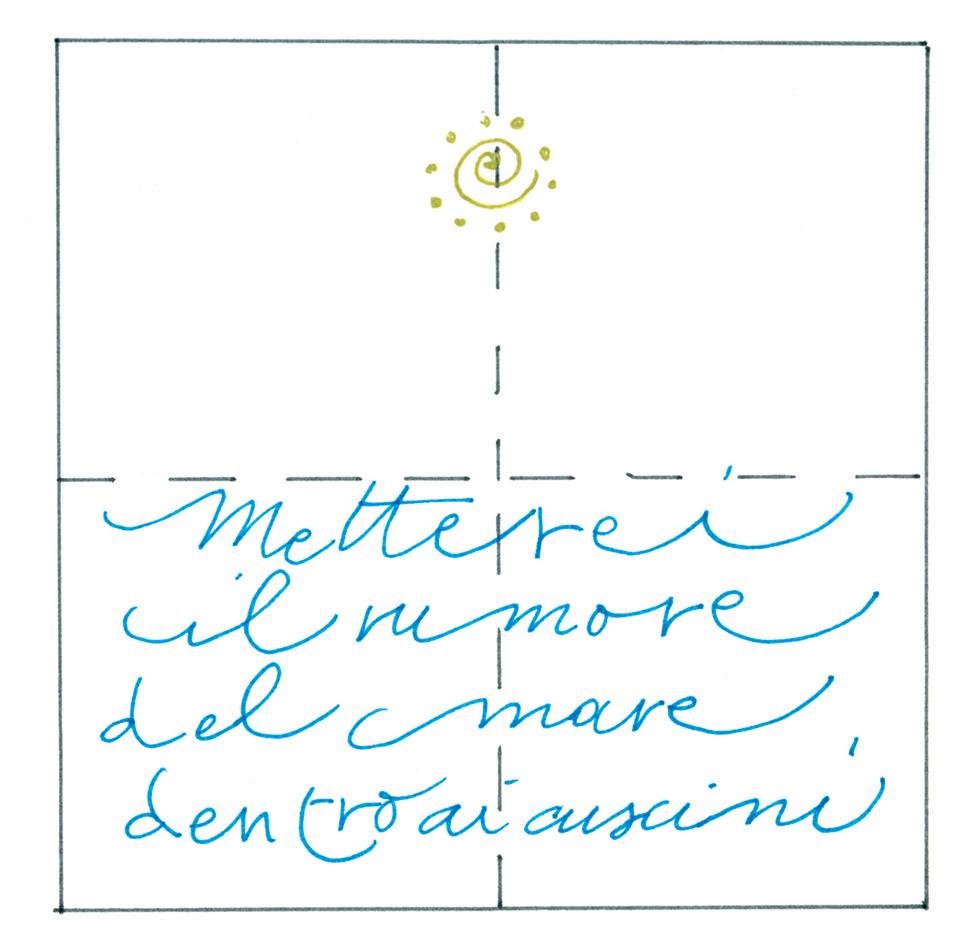 Metterei
il rumore
del mare
dentro ai cuscini